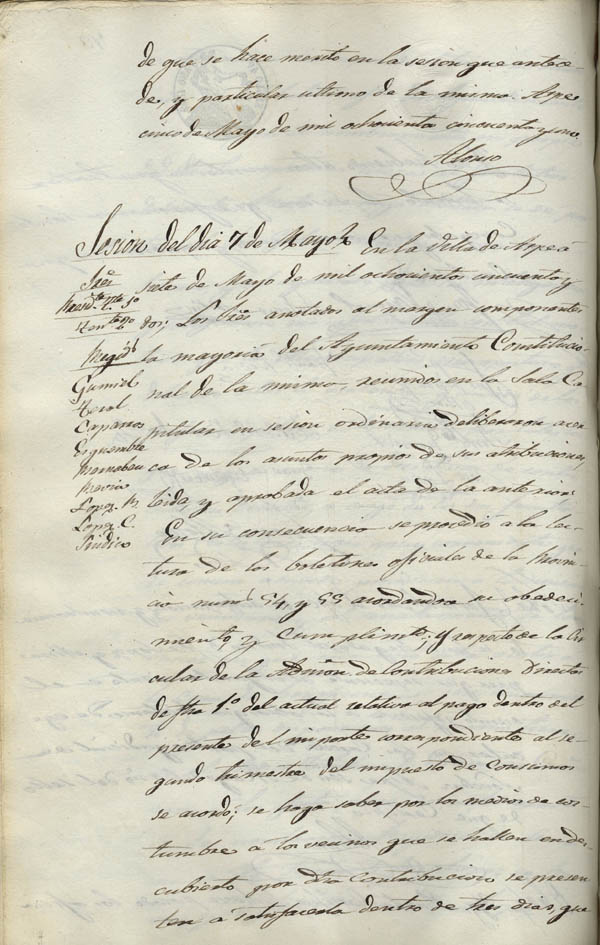 de que se hace merito en la sesion que antece-
de, y particular ultimo de la misma. Aspe
cinco de Mayo de mil ochocientos cincuenta y
Alonso
Sesion del dia 7 de Mayo
En la Villa de Aspe á
siete de Mayo de mil ochocientos cincuenta y
dos; Los Sres anotados al margen componentes
la mayoria del Ayuntamiento Constitucio-
nal de la misma, reunidos en la Sala Ca-
pitular en sesion ordinaria deliberaron acer-
ca de los asuntos propios de sus atribuciones,
leida y aprobada el acta de la anterior.
En su consecuencia se procedió a la lec-
tura de los boletines oficiales de la Provin-
cia num.s 54, y 55 acordandose su obedeci-
miento, y cumplimto; y respecto de la Cir-
cular de la Admon de Contribuciones Directas
de fha 1.º del actual relativa al pago dentro del
presente del importe correspondiente al se-
gundo trimestre del impuesto de consumos
se acordó; se haga saber por los medios de cos-
tumbre a los vecinos que se hallen en des-
cubierto por dha Contribucion se presen-
ten á satisfacerla dentro de tres dias, que
Sres
Presidte
Regid.s
Gumiel
Teral
Caparros
Esquembre
Lopez M.
Lopez C.
Sindico